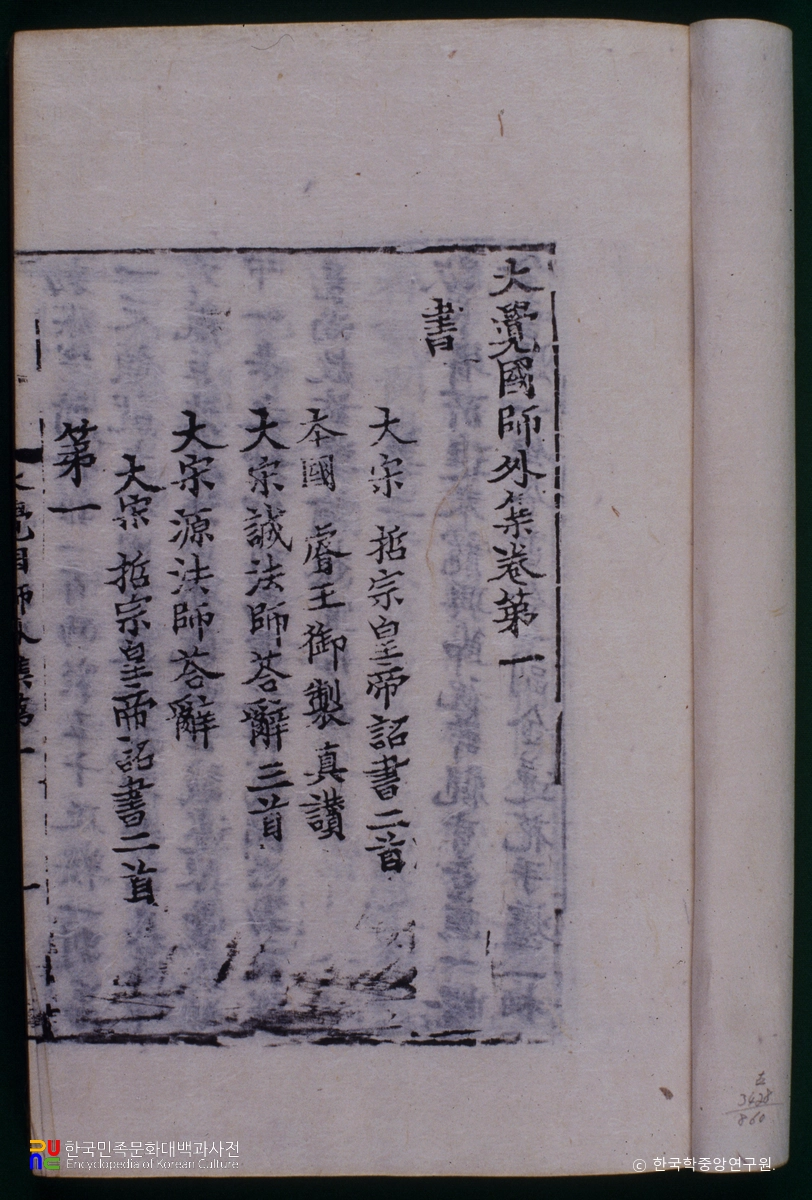 大覺國師外集卷第一
書
大宋 哲宗皇帝詔書二首
本國 睿王御製真讚
大宋誠法師荅辭三首
大宋源法師荅辭
大宋 哲宗皇帝詔書二首
第一
大覺國師外集第一
一
한국민족문화대백과사전
Encyclopedia of Korean Culture
© 한국학중앙연구원